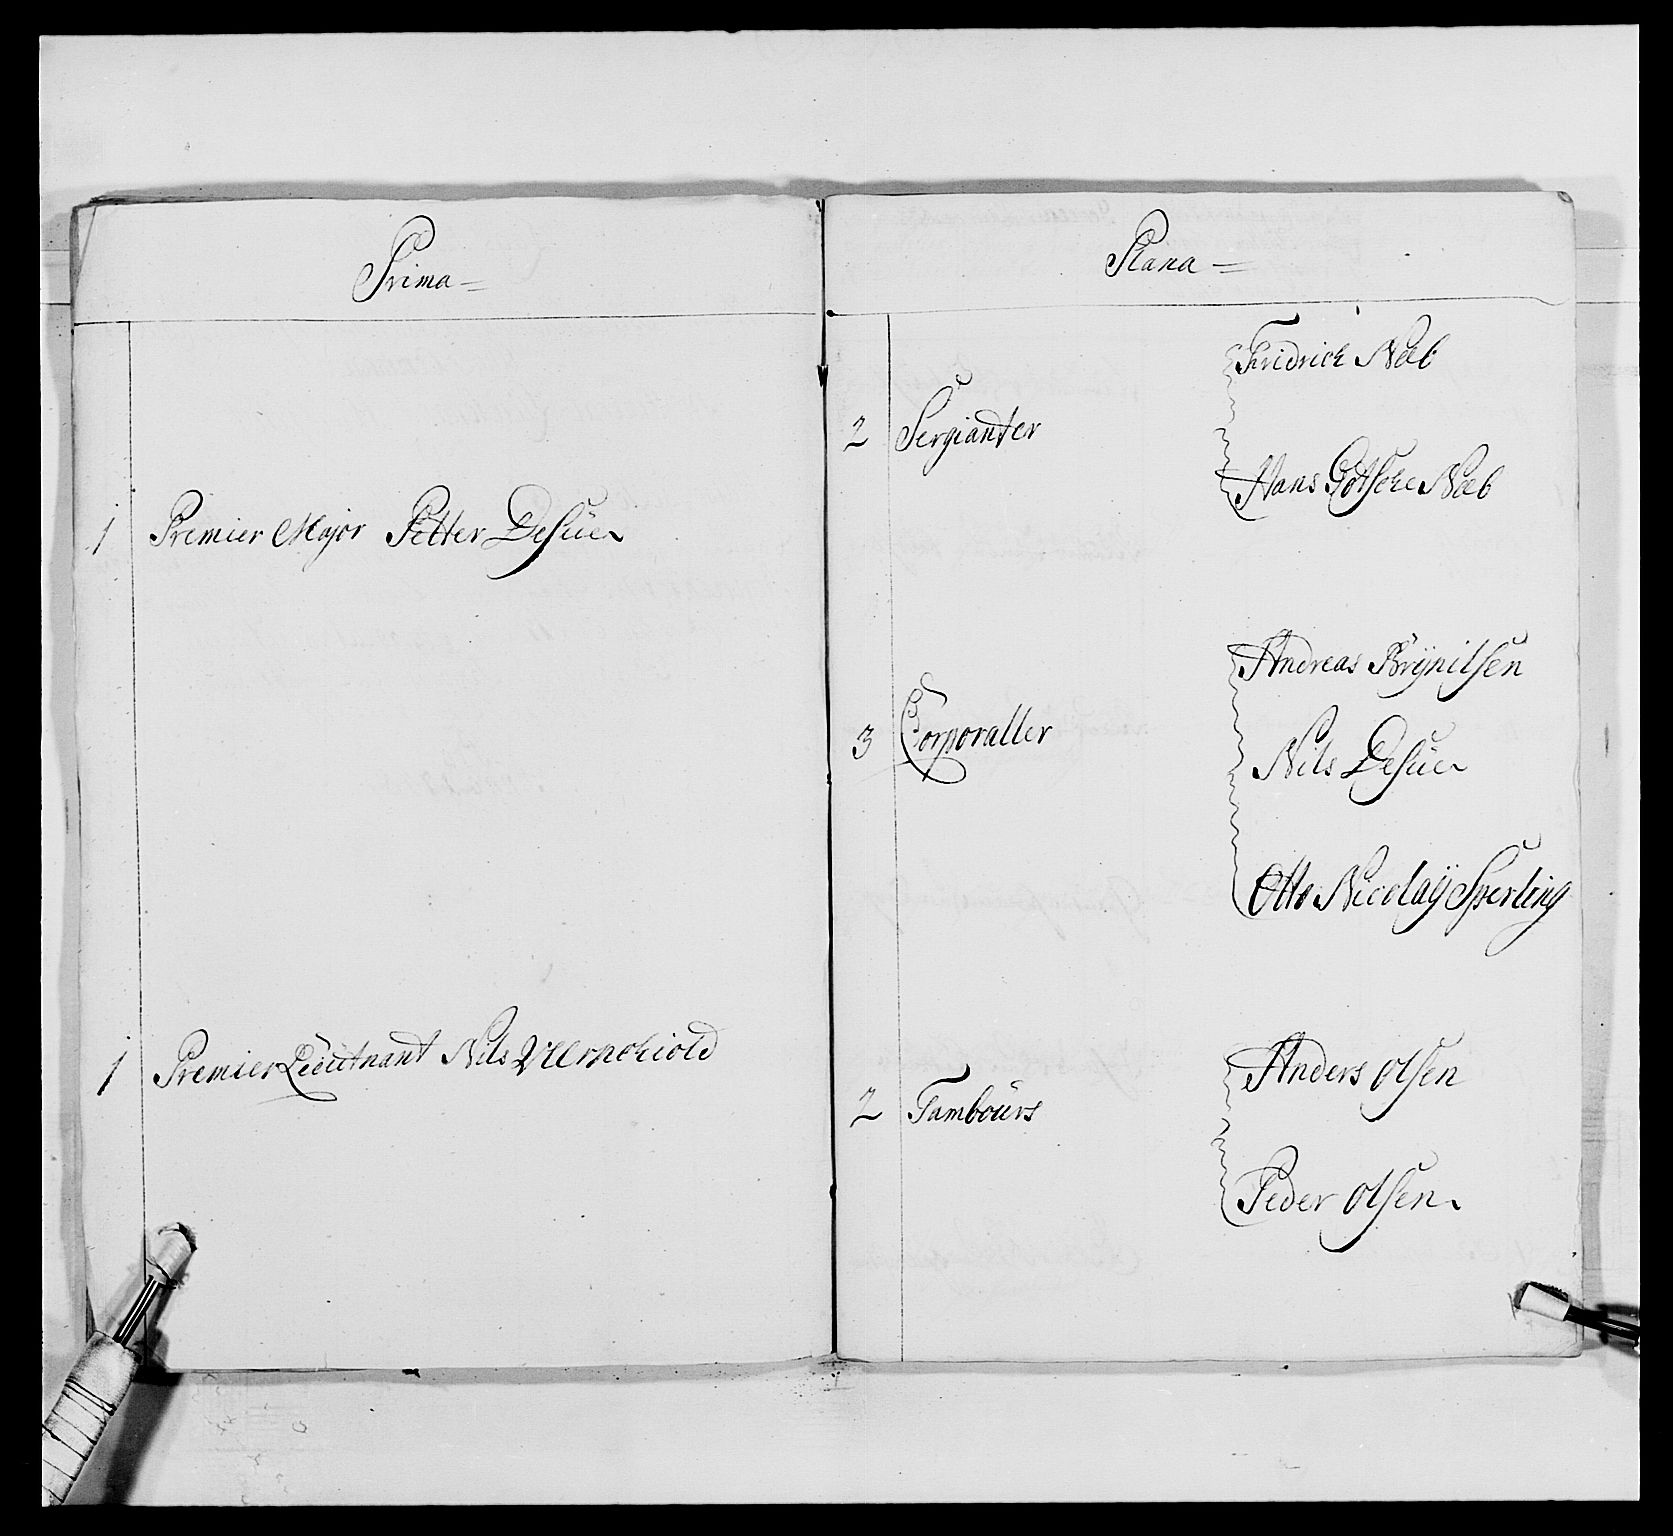 Prima =
1 Premier Major Petter Desüe
1 Premier Leüitnant Nils
Plana =
2 Sergianter
Fridrich Næb
Hans Gotsche Næb
3 Corporaller
Andreas Brÿnilsen
Nils Desüe
Otto Nicolaÿ Sperling
2 Tamboürs
Anders Olsen
Peder Olsen